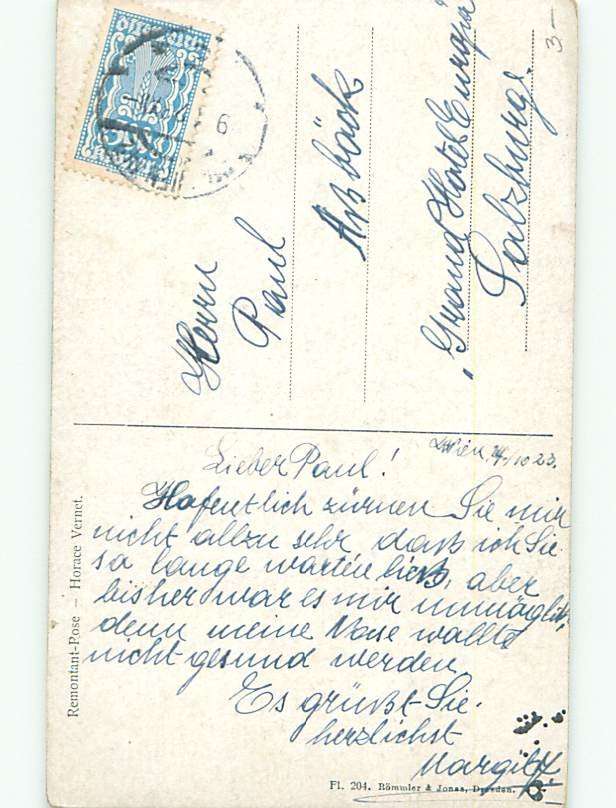 Herrn
Paul
Aßböck
Grand Hotel Europa
Salzburg.
3-
6
Wien, 4/10 23.
Lieber Paul!
Hofentlich zürnen Sie mir
nicht allzu sehr, daß ich Sie
so lange warten ließ, aber
bisher war es mir unmöglich,
denn meine Nase wollte
nicht gesund werden.
Es grüßt Sie
herzlichst
Margit
Remontant-Rose – Horace Vernet.
Fl. 204. Römmler & Jonas, Dresden.